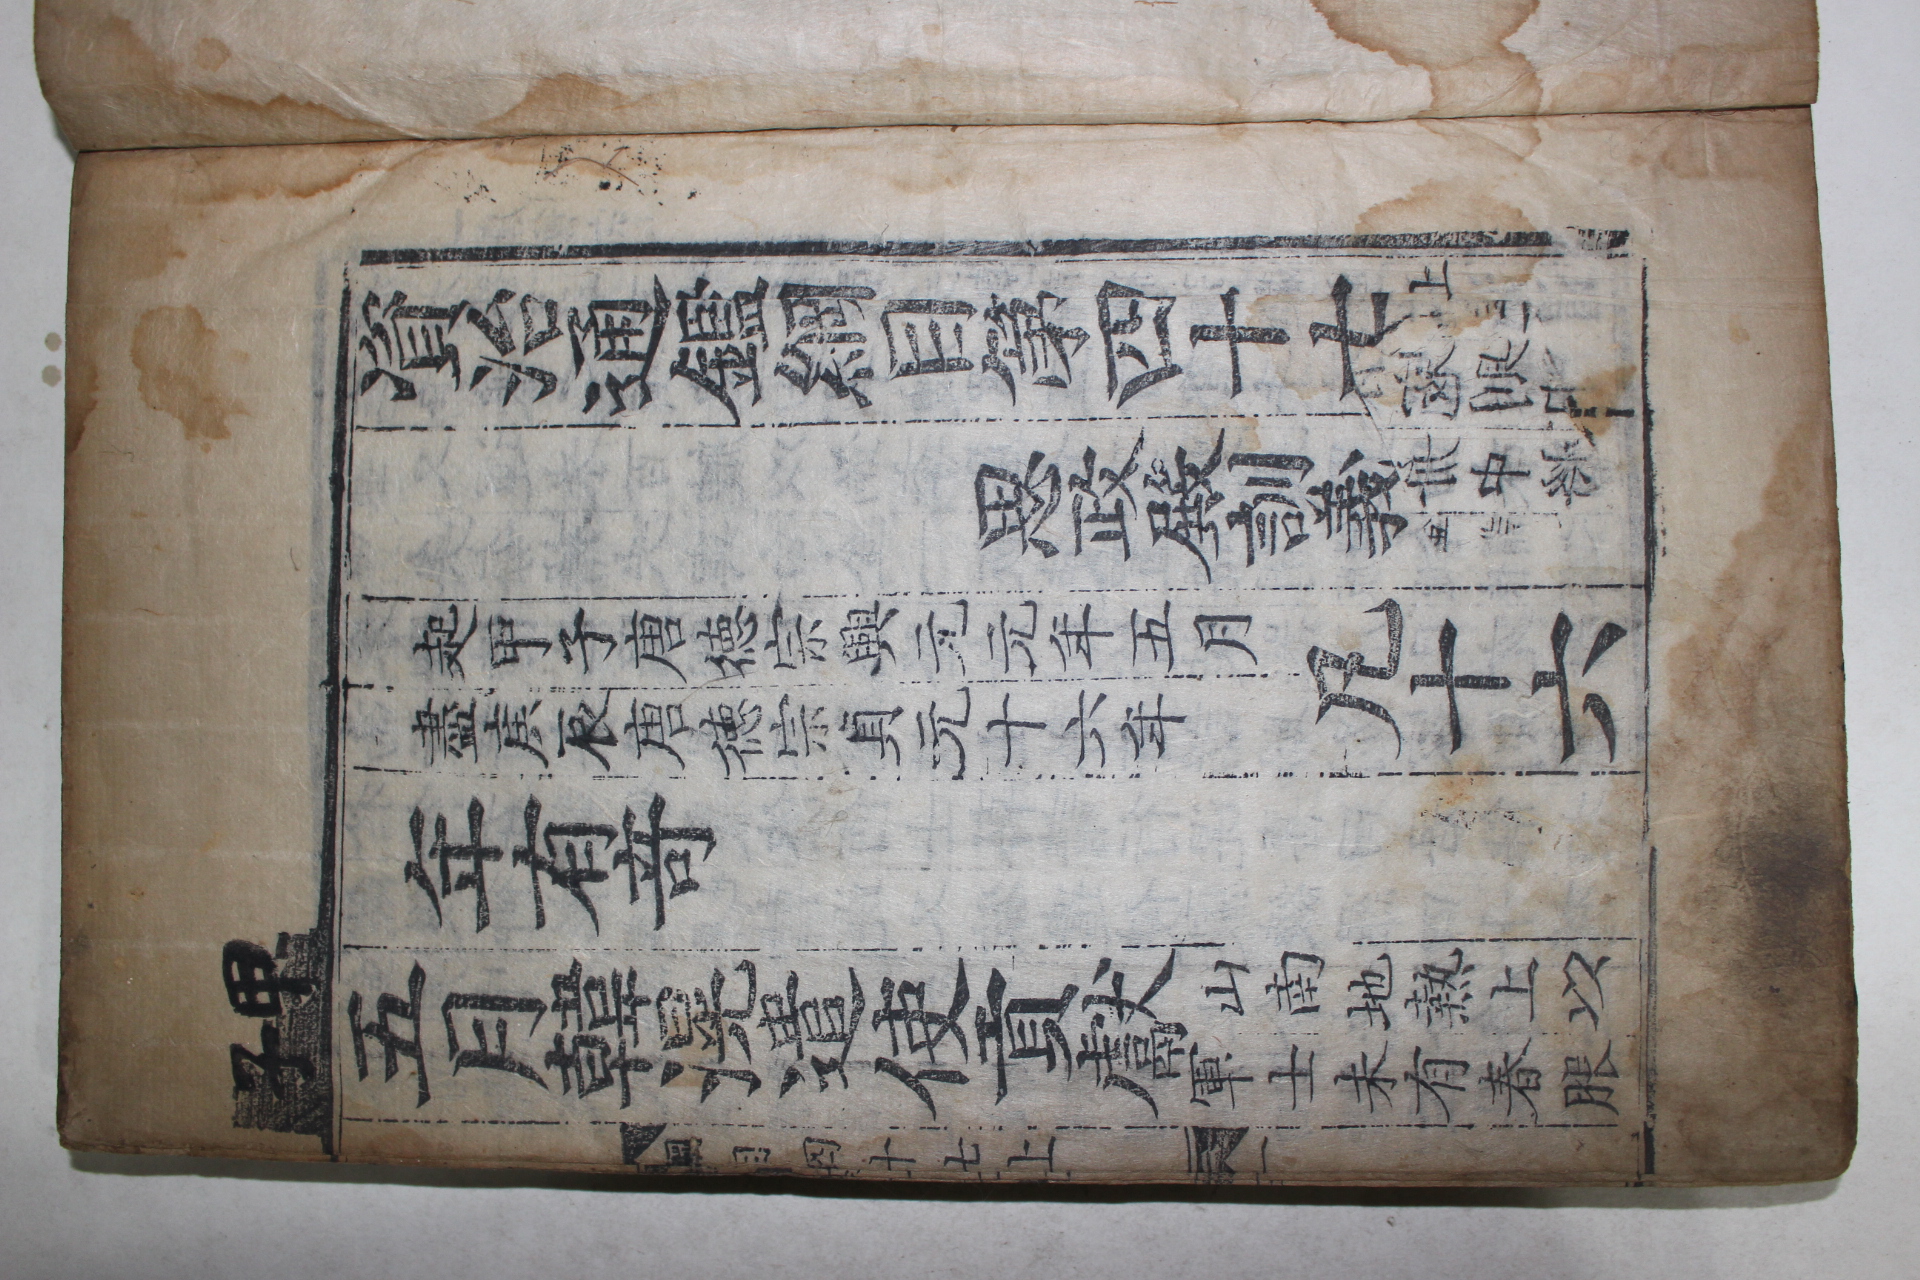 資治通鑑綱目第四十七上
思政殿訓義
起甲子唐德宗興元元年五月
盡庚辰唐德宗貞元十六年
凡十六
年有奇
甲子
五月韓滉遣使貢獻
山南地熱上以
軍士未有春服
綱目四十七上